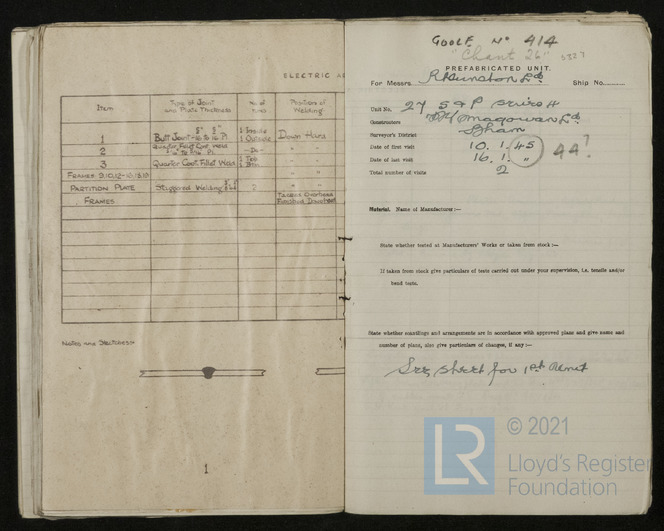 ELECTRIC
Item
Type of Joint and Plate Thickness
No. of
Position of Welding
1
Butt Joint
1 Inside
1 Outside
Down Hand
2
Quarter Foot Cont. Weld
-Do-
" "
3
Quarter Coat Fillet Weld
1 Top
1 Btm
" "
FRAMES 9.10.12-16.18.19
" "
PARTITION PLATE
Staggered Welding
2
" "
FRAMES
Tacked Overhead
Finished Downhand
NOTES AND SKETCHES:-
1
GOOLE No 414
"Chant 26"
PREFABRICATED UNIT.
For Messrs. R Dunston Ld
Ship No.
Unit No. 27 S & P Series H
Constructors Magowan Ld
Surveyor's District Bham
Date of first visit 10. 1. 45
44?
Date of last visit 16. 1. "
Total number of visits 2
Material. Name of Manufacturer :—
State whether tested at Manufacturers' Works or taken from stock :—
If taken from stock give particulars of tests carried out under your supervision, i.e. tensile and/or
bend tests.
State whether scantlings and arrangements are in accordance with approved plans and give name and
number of plans, also give particulars of changes, if any :—
See sheet for 1st Unit
LR
© 2021
Lloyd's Register
Foundation